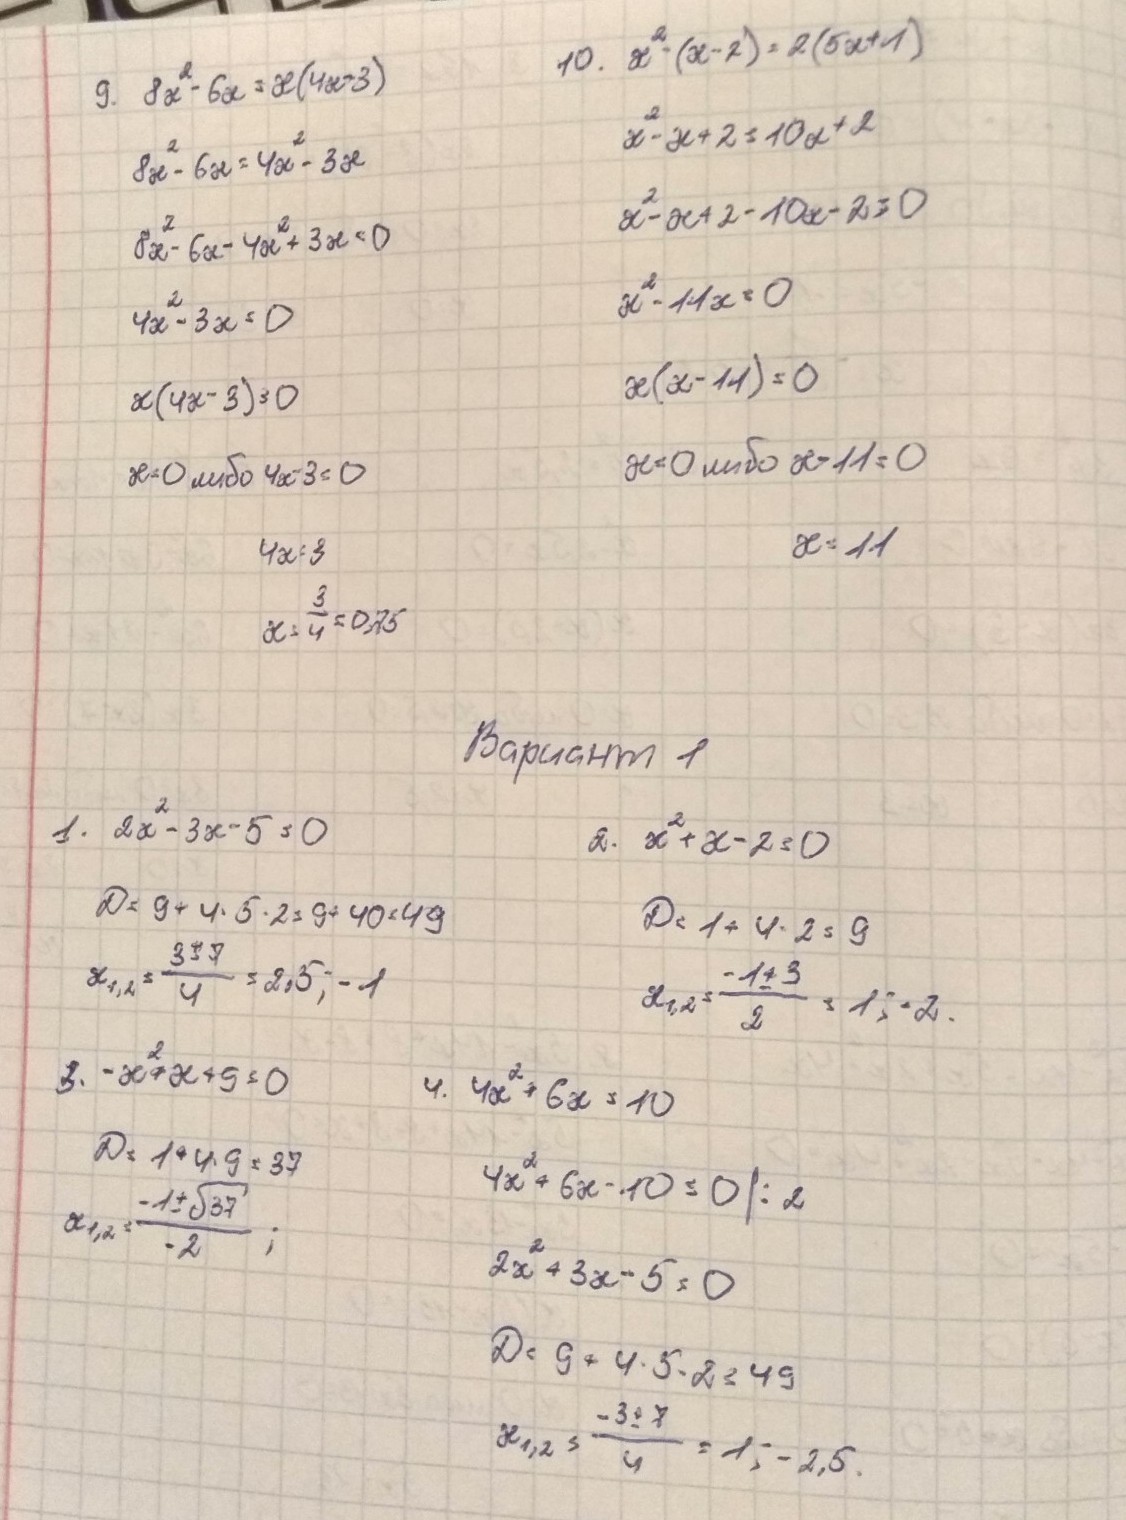 9. 8x² - 6x = x(4x-3)
8x² - 6x = 4x² - 3x
8x² - 6x - 4x² + 3x = 0
4x² - 3x = 0
x(4x - 3) = 0
x=0 либо 4x-3=0
4x=3
x = 3/4 = 0,75
10. x² - (x-2) = 2(5x+1)
x² - x + 2 = 10x + 2
x² - x + 2 - 10x - 2 = 0
x² - 11x = 0
x(x-11) = 0
x=0 либо x-11=0
x = 11
Вариант 1
1. 2x² - 3x - 5 = 0
D = 9 + 4·5·2 = 9 + 40 = 49
x₁,₂ = (3±7)/4 = 2,5; -1
2. x² + x - 2 = 0
D = 1 + 4·2 = 9
x₁,₂ = (-1±3)/2 = 1; -2.
3. -x² + x + 9 = 0
D = 1 + 4·9 = 37
x₁,₂ = (-1±√37)/-2 ;
4. 4x² + 6x = 10
4x² + 6x - 10 = 0 |: 2
2x² + 3x - 5 = 0
D = 9 + 4·5·2 = 49
x₁,₂ = (-3±7)/4 = 1; -2,5.